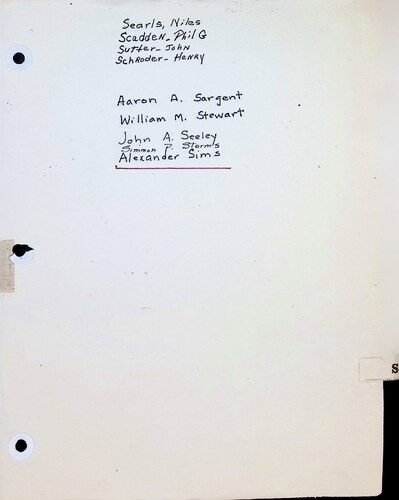 Searls, Niles
Scadden - Phil G
Sutter - John
Schroder - Henry
Aaron A. Sargent
William M. Stewart
John A. Seeley
Simmon P. Storms
Alexander Sims
S